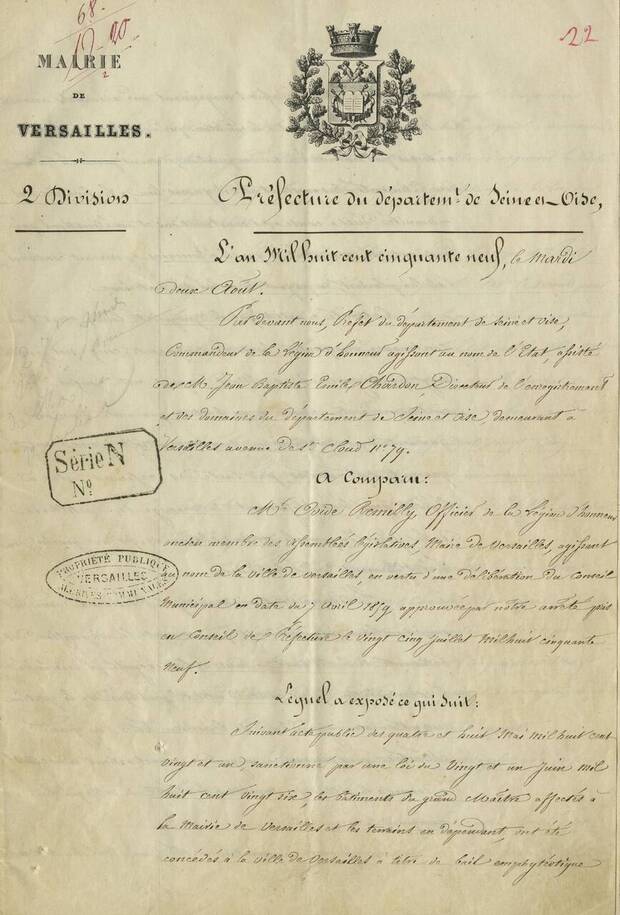 68.
12 20
2
22
MAIRIE
DE
VERSAILLES.
2 Division
Préfecture du départemt. de Seine et Oise,
L'an Mil huit cent cinquante neuf, le Mardi
deux Août.
Par devant nous, Préfet du département de Seine et Oise,
Commandeur de la Légion d'honneur agissant au nom de l'Etat, assisté
de M. Jean Baptiste Emile Chardon, Directeur de l'enregistrement
et des domaines du département de Seine et Oise, demeurant à
Versailles avenue de St. Cloud No. 79.
A Comparu:
Mr. Ovide Remilly, Officier de la Légion d'honneur
ancien membre des Assemblées législatives, Maire de Versailles, agissant
au nom de la ville de Versailles, en vertu d'une délibération du Conseil
Municipal en date du 7 Avril 1859 approuvée par notre arrêté pris
en Conseil de Préfecture le vingt cinq juillet Mil huit cinquante
neuf.
Série N
No.
PROPRIÉTÉ PUBLIQUE
VERSAILLES
ARCHIVES COMMUNALES
Lequel a exposé ce qui suit:
Suivant acte public des quatre et huit Mai Mil huit cent
vingt et un, sanctionné par une loi du vingt et un Juin Mil
huit cent vingt six, les bâtiments du grand Maître affectés à
la Mairie de Versailles et les terrains en dépendant, ont été
concédés à la ville de Versailles à titre de bail emphytéotique